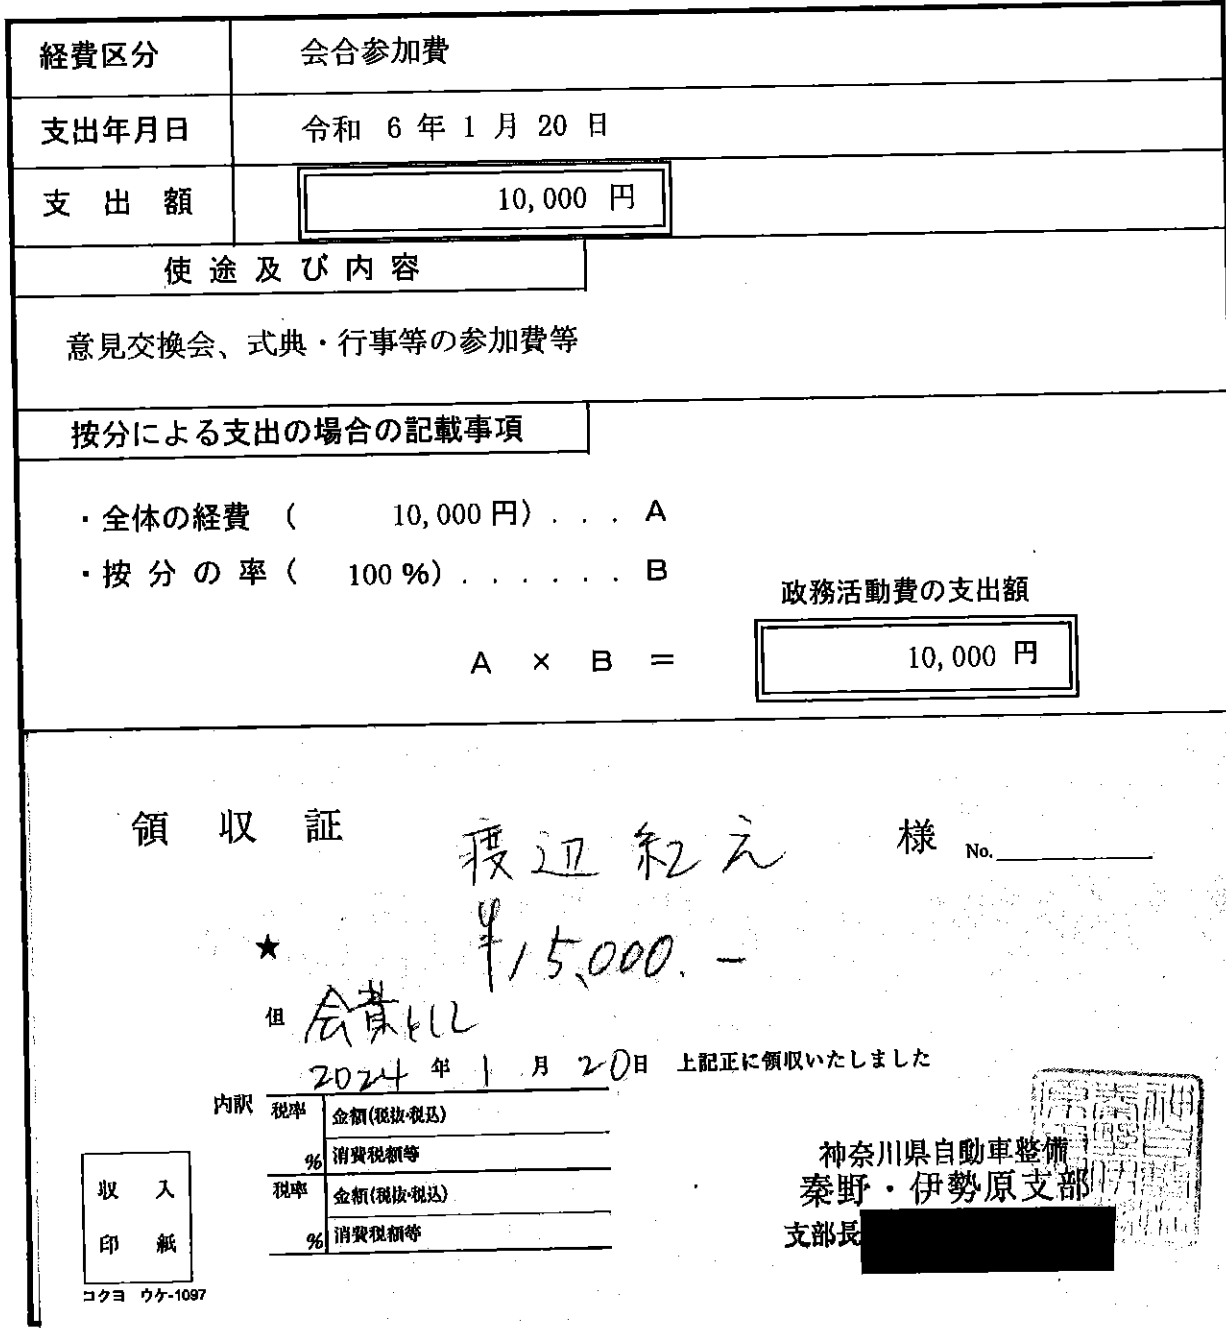 経費区分 会合参加費
支出年月日 令和 6 年 1 月 20 日
支出額 10,000 円
使途及び内容
意見交換会、式典・行事等の参加費等
按分による支出の場合の記載事項
・全体の経費 ( 10,000 円) . . . A
・按分の率 ( 100 %) . . . . . . B
政務活動費の支出額
A × B = 10,000 円
領収証 渡辺紀之 様 No.
★ ¥15,000.-
但 会費として
2024 年 1 月 20日 上記正に領収いたしました
内訳 税率 金額(税抜・税込)
% 消費税額等
税率 金額(税抜・税込)
% 消費税額等
収入
印紙
コクヨ ウケ-1097
神奈川県自動車整備
秦野・伊勢原支部
支部長